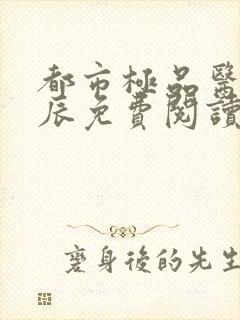 都市極品醫
辰免費閱讀
變身後的先生